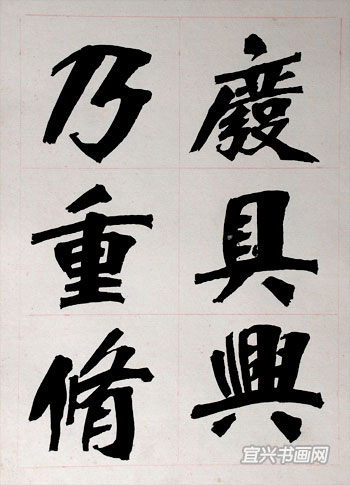 廢具興
乃重脩
宜兴书画网